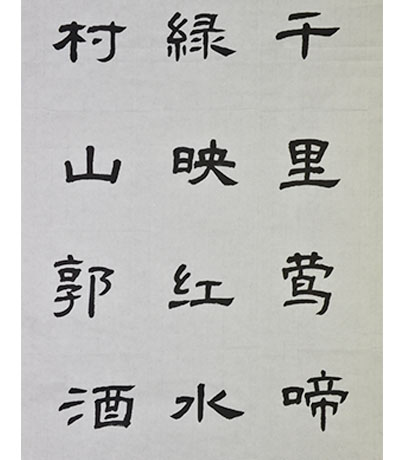 千里莺啼
緑映红水
村山郭酒